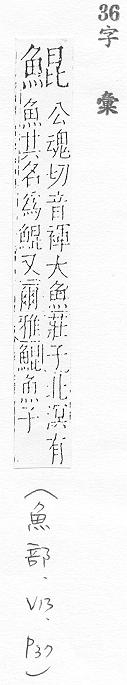 36字彙
鯤
公魂切音裈大魚莊子北溟有
魚其名爲鯤又爾雅鯤魚子
(魚部、V13、P37)